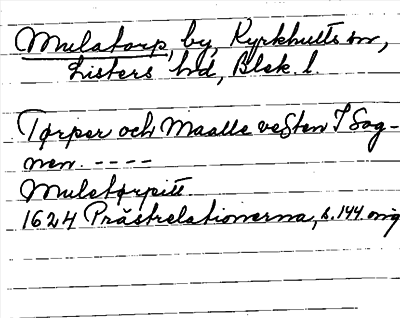 Mulatorp, by, Kyrkhults sn,
Listers hd, Blek. l.
Tørper och Maalle vesten I Sog-
nen. ----
Muletørpitt
1624 Prästrelationerna, s. 144 orig